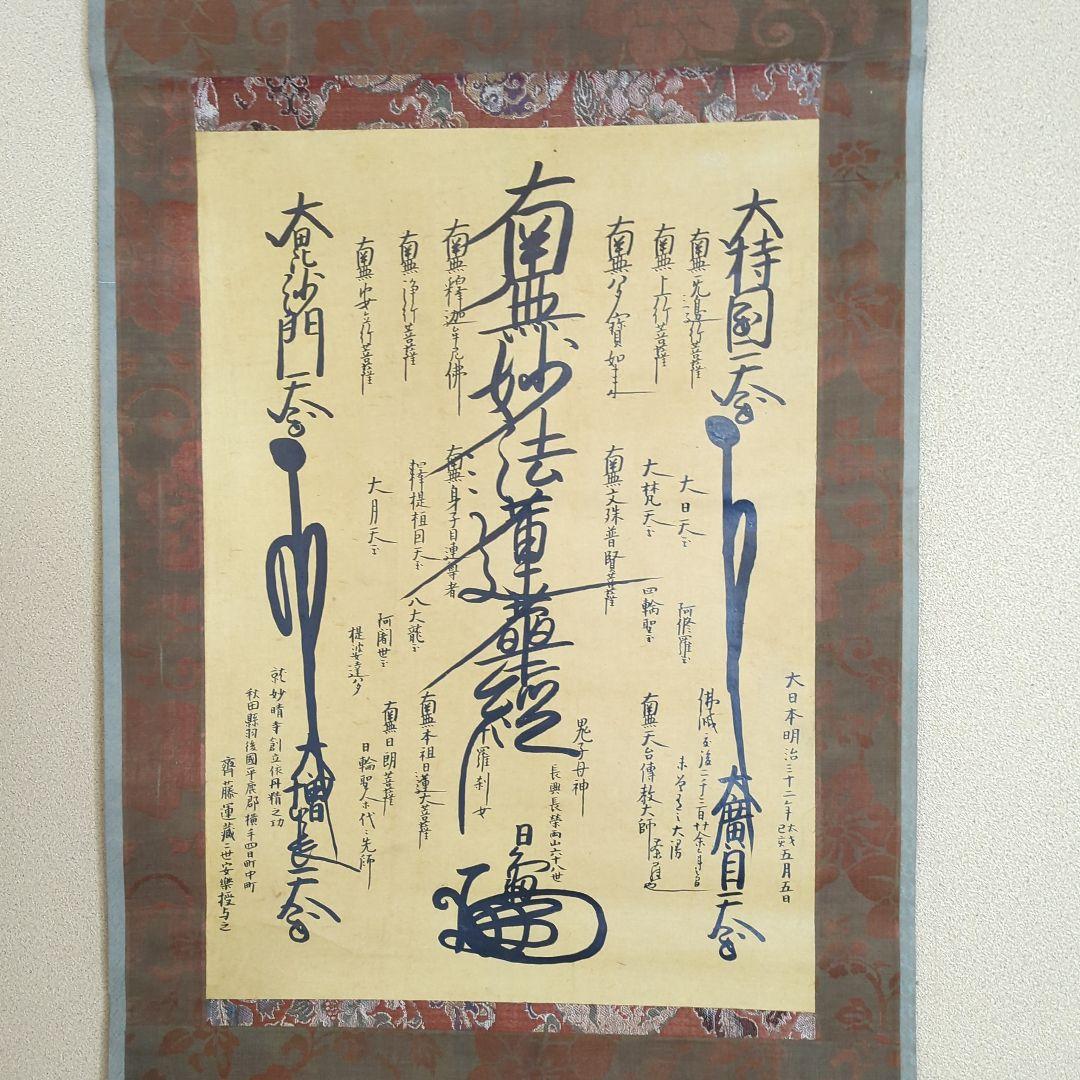 大持国天王
大廣目天王
大日本明治三十二年太歳己亥五月五日
南無無邊行菩薩
南無上行菩薩
南無多寶如来
南無妙法蓮華經
南無釋迦牟尼佛
南無浄行菩薩
南無安立行菩薩
大毘沙門天王
大日天王
大梵天王
南無文殊普賢菩薩
南無身子目連尊者
釋提桓因天王
大月天王
阿修羅王
四輪聖王
八大龍王
阿闍世王
提婆達多
佛滅度後二千二百廿余年之間
未曽有之大漫荼羅也
南無天台傳教大師
鬼子母神
十羅刹女
南無本祖日蓮大菩薩
南無日朗菩薩
日輪聖人等代々先師
長興長榮両山六十八世
日
大増長天王
就妙晴寺創立依丹精之功
秋田縣羽後國平鹿郡横手四日町中町
齊藤運藏二世安樂授与之